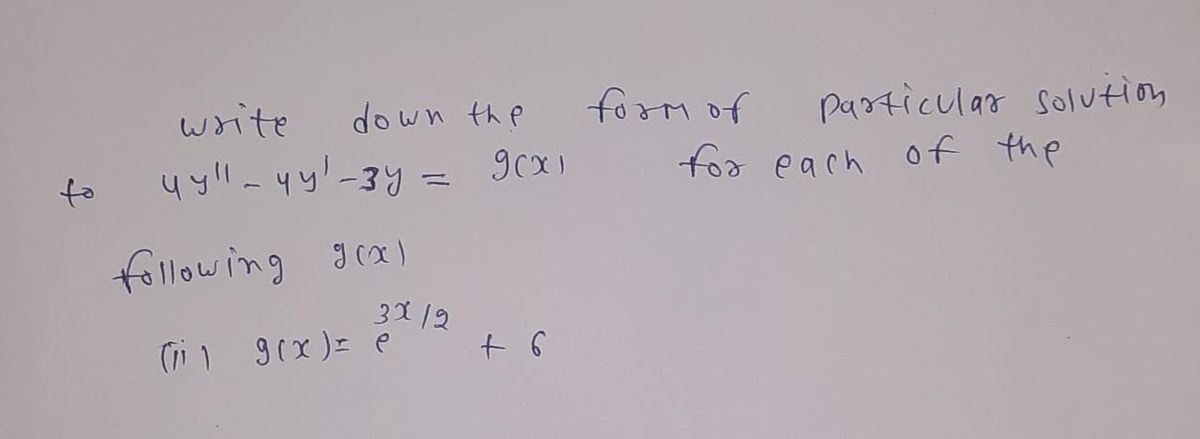 write down the form of particular solution
to 4y'' - 4y' - 3y = g(x) for each of the
following g(x)
(ii) g(x) = e^{3x/2} + 6